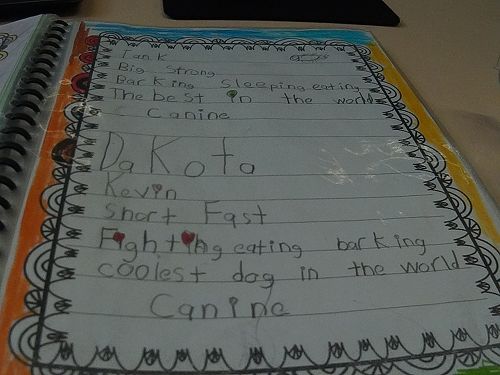 Tank
Big Strong
Barking Sleeping eating
The best in the world
Canine
DaKota
Kevin
Short Fast
Fighting eating barking
coolest dog in the world
Canine